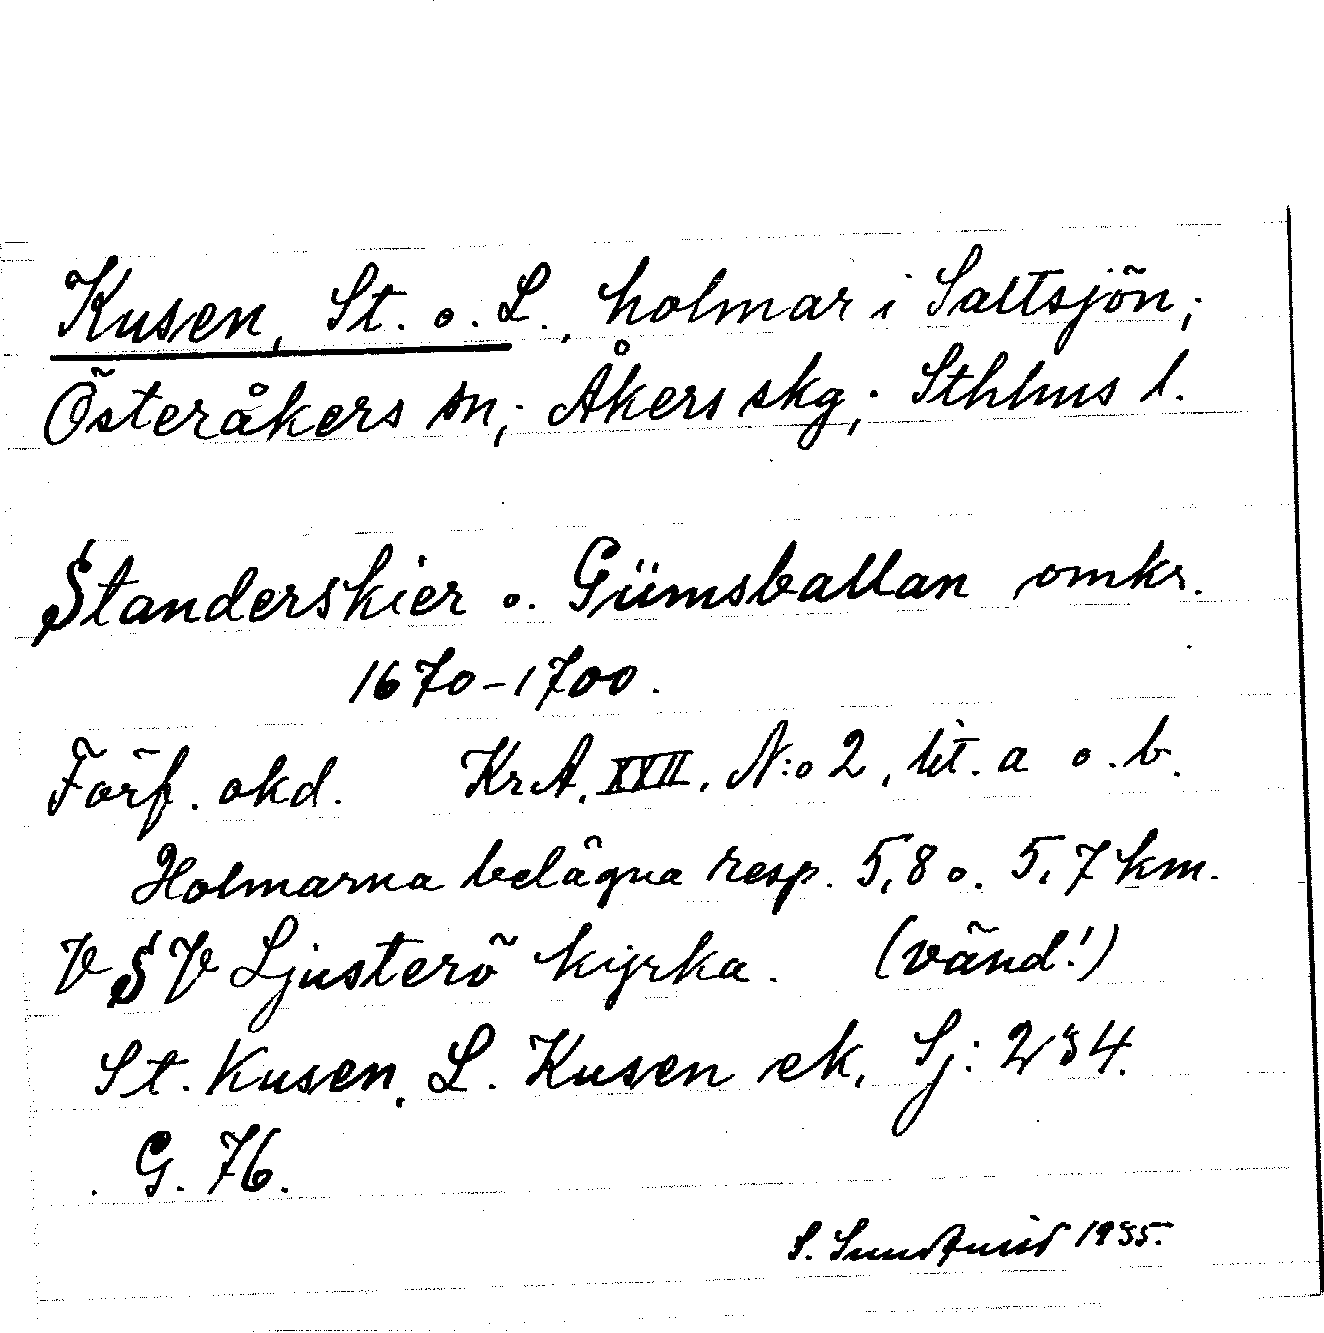 Kusen, St. o. L., holmar i Saltsjön;
Österåkers sn; Åkers skg; Sthlms l.
Standerskier o. Gümsballan omkr.
1670-1700.
Förf. okd. KrA. XXII. N:o 2, lit. a o. b.
Holmarna belägna resp. 5,8 o. 5,7 km.
VSV Ljusterö kyrka. (vänd!)
St. Kusen, L. Kusen ek. Sj: 234.
G. 76.
S. Sundquist 1935.